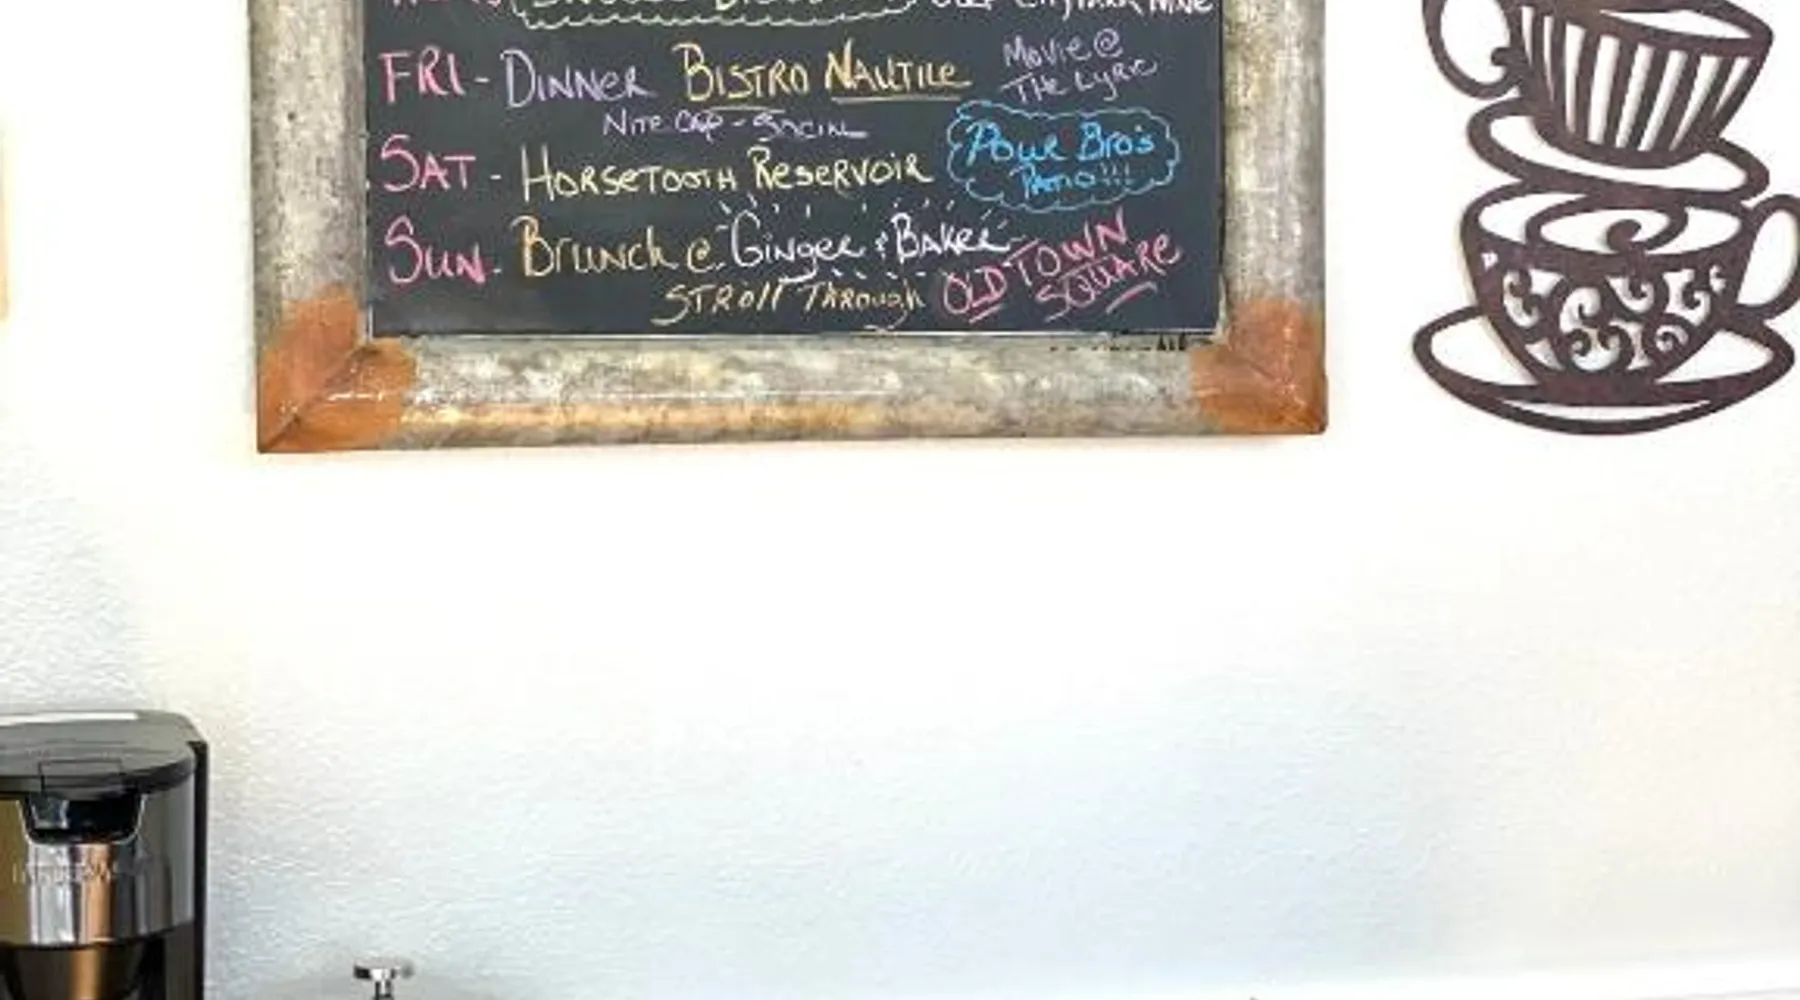 FRI - DINNER BISTRO NAUTILE MOVIE @ THE LYRIC
NITE CAP - SOCIAL
SAT - HORSETOOTH RESERVOIR POUR BROS PATIO!!!
SUN - Brunch @ GINGER & BAKER
STROll THROUGH OLD TOWN SQUARE